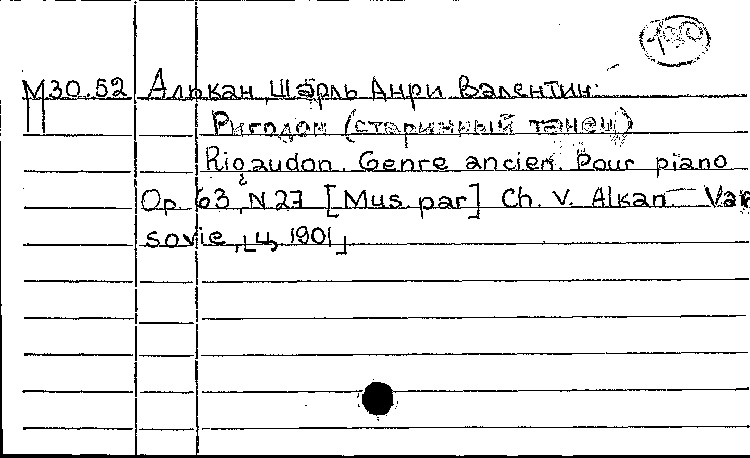 190
М30.52 Алькан, Шарль Анри Валентин.
Ригодон (старинный танец)
Rigaudon. Genre ancien. Pour piano
Op. 63, N 27 [Mus. par] Ch. V. Alkan. — Var
sovie, [ц, 1901]